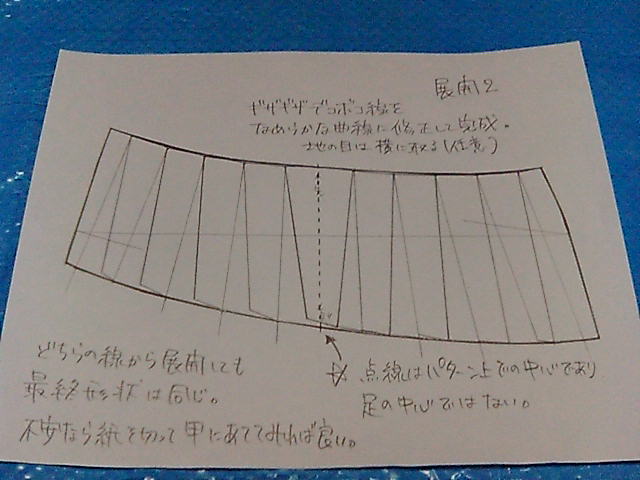 展開2
ギザギザデコボコ線を
なめらかな曲線に修正して完成。
地の目は横に取る(任意)
どちらの線から展開しても
最終形状は同じ。
不安なら紙を切って甲にあててみれば良い。
※点線はパターン上での中心であり
足の中心ではない。